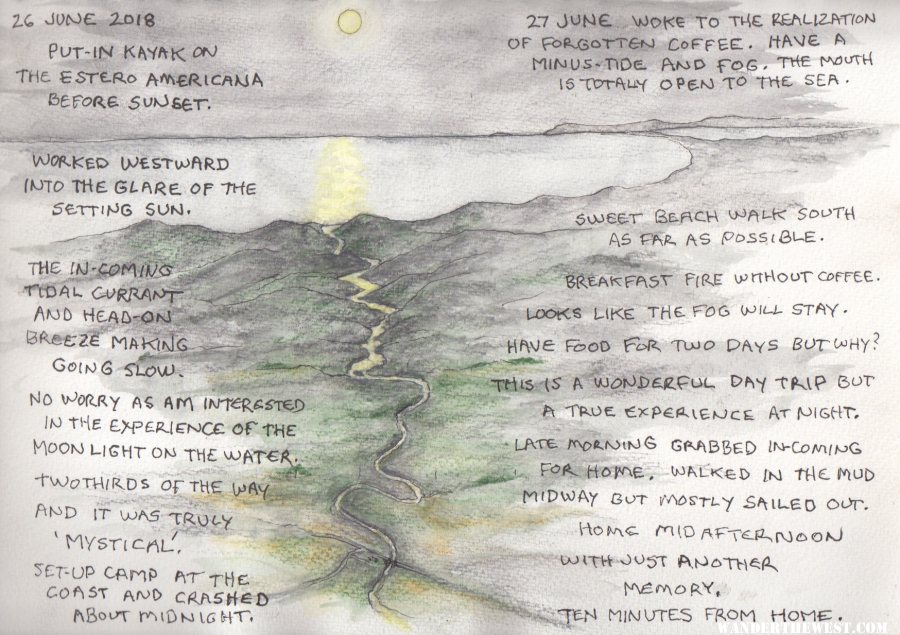 26 JUNE 2018
PUT-IN KAYAK ON
THE ESTERO AMERICANA
BEFORE SUNSET.
WORKED WESTWARD
INTO THE GLARE OF THE
SETTING SUN.
THE IN-COMING
TIDAL CURRANT
AND HEAD-ON
BREEZE MAKING
GOING SLOW.
NO WORRY AS AM INTERESTED
IN THE EXPERIENCE OF THE
MOONLIGHT ON THE WATER.
TWOTHIRDS OF THE WAY
AND IT WAS TRULY
'MYSTICAL'.
SET-UP CAMP AT THE
COAST AND CRASHED
ABOUT MIDNIGHT.
27 JUNE WOKE TO THE REALIZATION
OF FORGOTTEN COFFEE. HAVE A
MINUS-TIDE AND FOG. THE MOUTH
IS TOTALY OPEN TO THE SEA.
SWEET BEACH WALK SOUTH
AS FAR AS POSSIBLE.
BREAKFAST FIRE WITHOUT COFFEE.
LOOKS LIKE THE FOG WILL STAY.
HAVE FOOD FOR TWO DAYS BUT WHY?
THIS IS A WONDERFUL DAY TRIP BUT
A TRUE EXPERIENCE AT NIGHT.
LATE MORNING GRABBED IN-COMING
FOR HOME. WALKED IN THE MUD
MIDWAY BUT MOSTLY SAILED OUT.
HOME MIDAFTERNOON
WITH JUST ANOTHER
MEMORY.
TEN MINUTES FROM HOME.
WANDERTHEWEST.COM